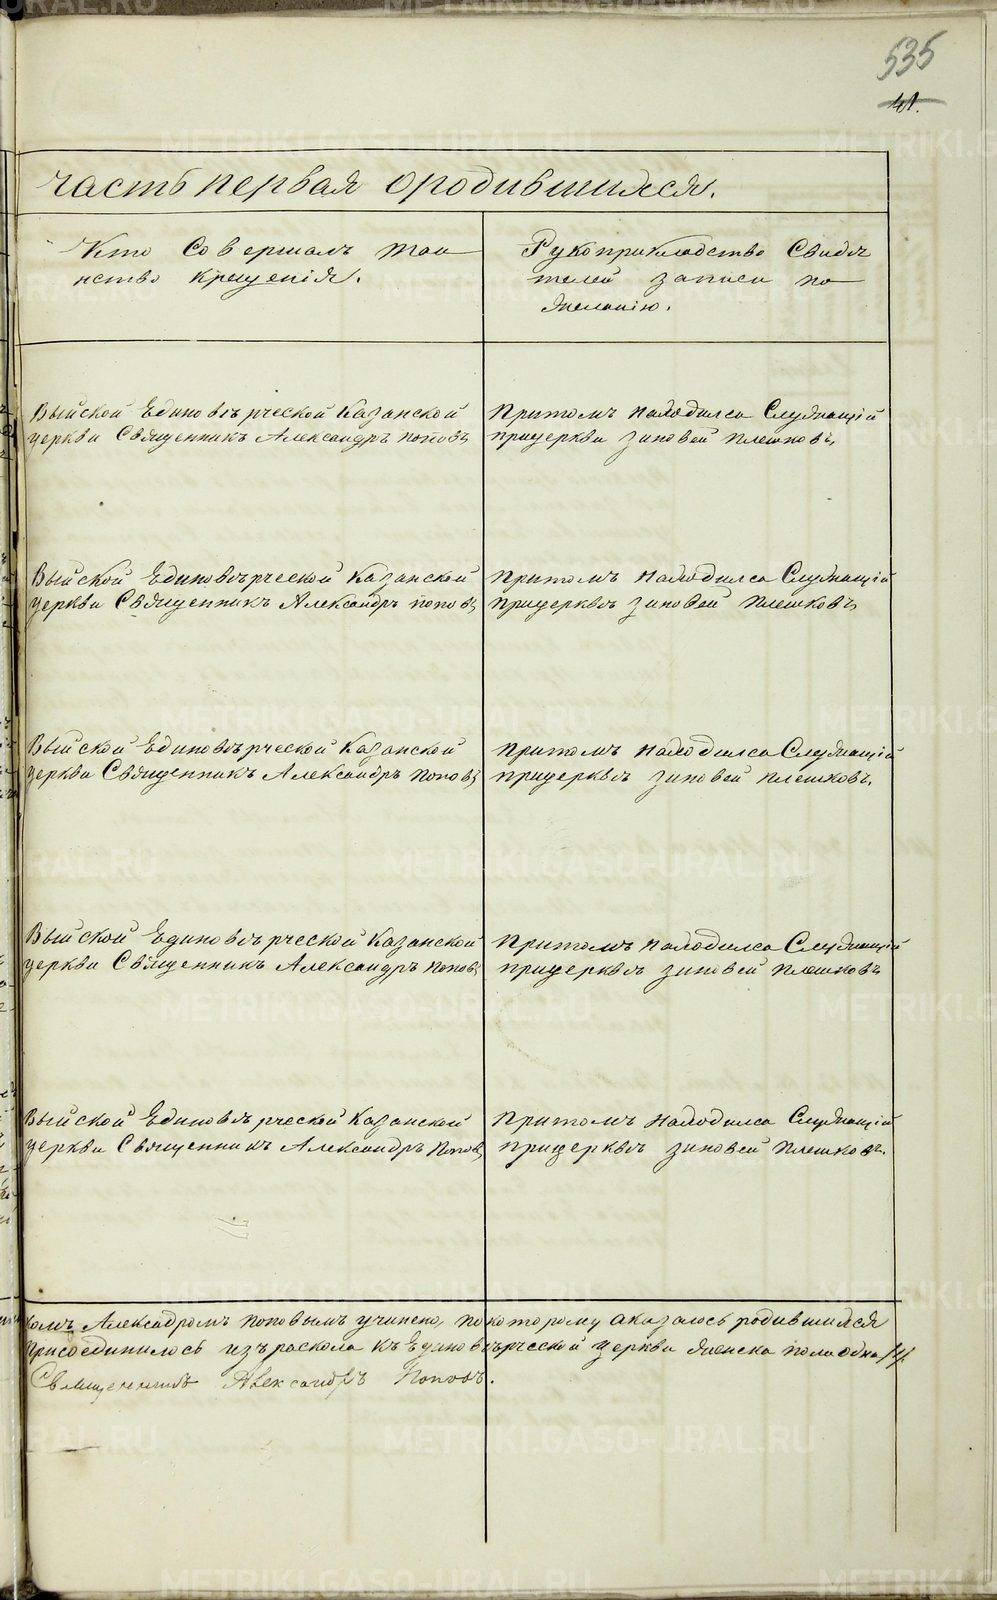 535
41.
Часть первая о родившихся.
Кто совершалъ таи
нство крещенія.
Рукоприкладство свидѣ
телей записи по
желанію.
Выйской Единовѣрческой Казанской
церкви Священникъ Александръ Поповъ
Притомъ находился Служащій
прицеркви Зиновей Плешковъ,
Выйской Единовѣрческой Казанской
церкви Священникъ Александръ Поповъ
Притомъ находился Служащій
прицерквѣ Зиновей Плешковъ
Выйской Единовѣрческой Казанской
церкви Священникъ Александръ Поповъ
Притомъ находился Служащій
прицерквѣ Зиновей Плешковъ.
Выйской Единовѣрческой Казанской
церкви Священникъ Александръ Поповъ
Притомъ находился Служащій
прицерквѣ Зиновей Плешковъ
Выйской Единовѣрческой Казанской
церкви Священникъ Александръ Поповъ
Притомъ находился Служащій
прицерквѣ Зиновей Плешковъ.
комъ Александромъ Поповымъ учинено, по которому аказалось родившихся
Присоединилось изъ раскола къ Единовѣрческой церкви женска пола одна /1/.
Священникъ Александръ Поповъ.
METRIKI.GASO-URAL.RU